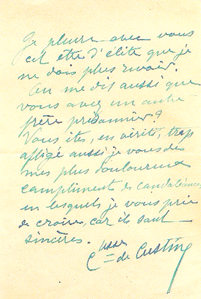 Je pleure avec vous
cet être d'élite que je
ne dois plus revoir.
On me dit aussi que
vous avez un autre
frère prisonnier ?
Vous êtes, en vérité, trop
affligé aussi je vous
mes plus douloureux
compliments de condoléances
en lesquels je vous prie
de croire, car ils sont
sincères.
Ctesse de Custine